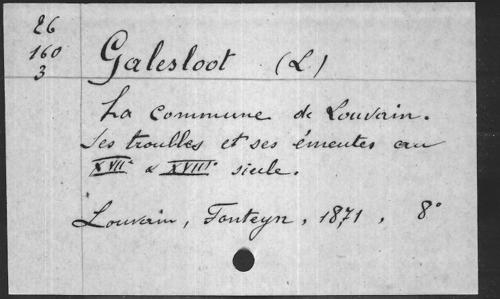 26
160
3
Galesloot (L.)
La commune de Louvain.
Ses troubles et ses émeutes au
XVIIe & XVIIIe siècle.
Louvain, Fonteyn, 1871, 8°